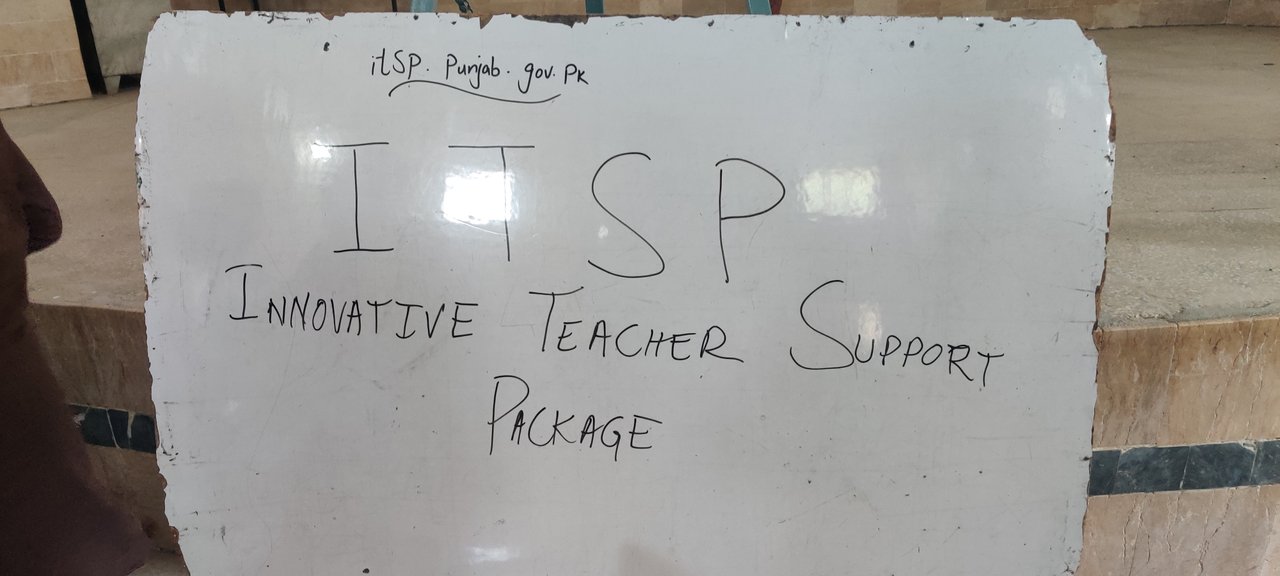 itSP. Punjab. gov. PK
I T S P
INNOVATIVE TEACHER SUPPORT
PACKAGE